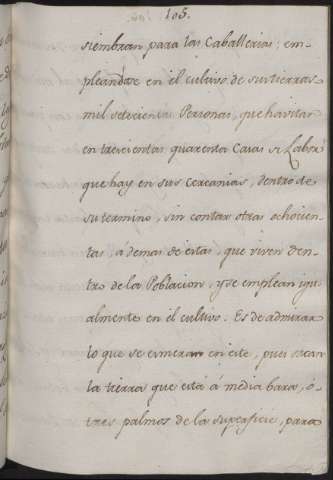 105.
siembran para las Caballerias; em-
pleandose en el cultivo de sus tierras
mil setecientas Personas, que havitan
en trecientas quarenta Casas de Labor
que hay en sus cercanias, dentro de
su termino, sin contar otras ochocien-
tas, ademas de estas, que viven Den-
tro de la Poblacion, y se emplean igu-
almente en el cultivo. Es de admirar
lo que se esmeran en este, pues sacan
la tierra que está á media bara, ó
tres palmos de la superficie, para